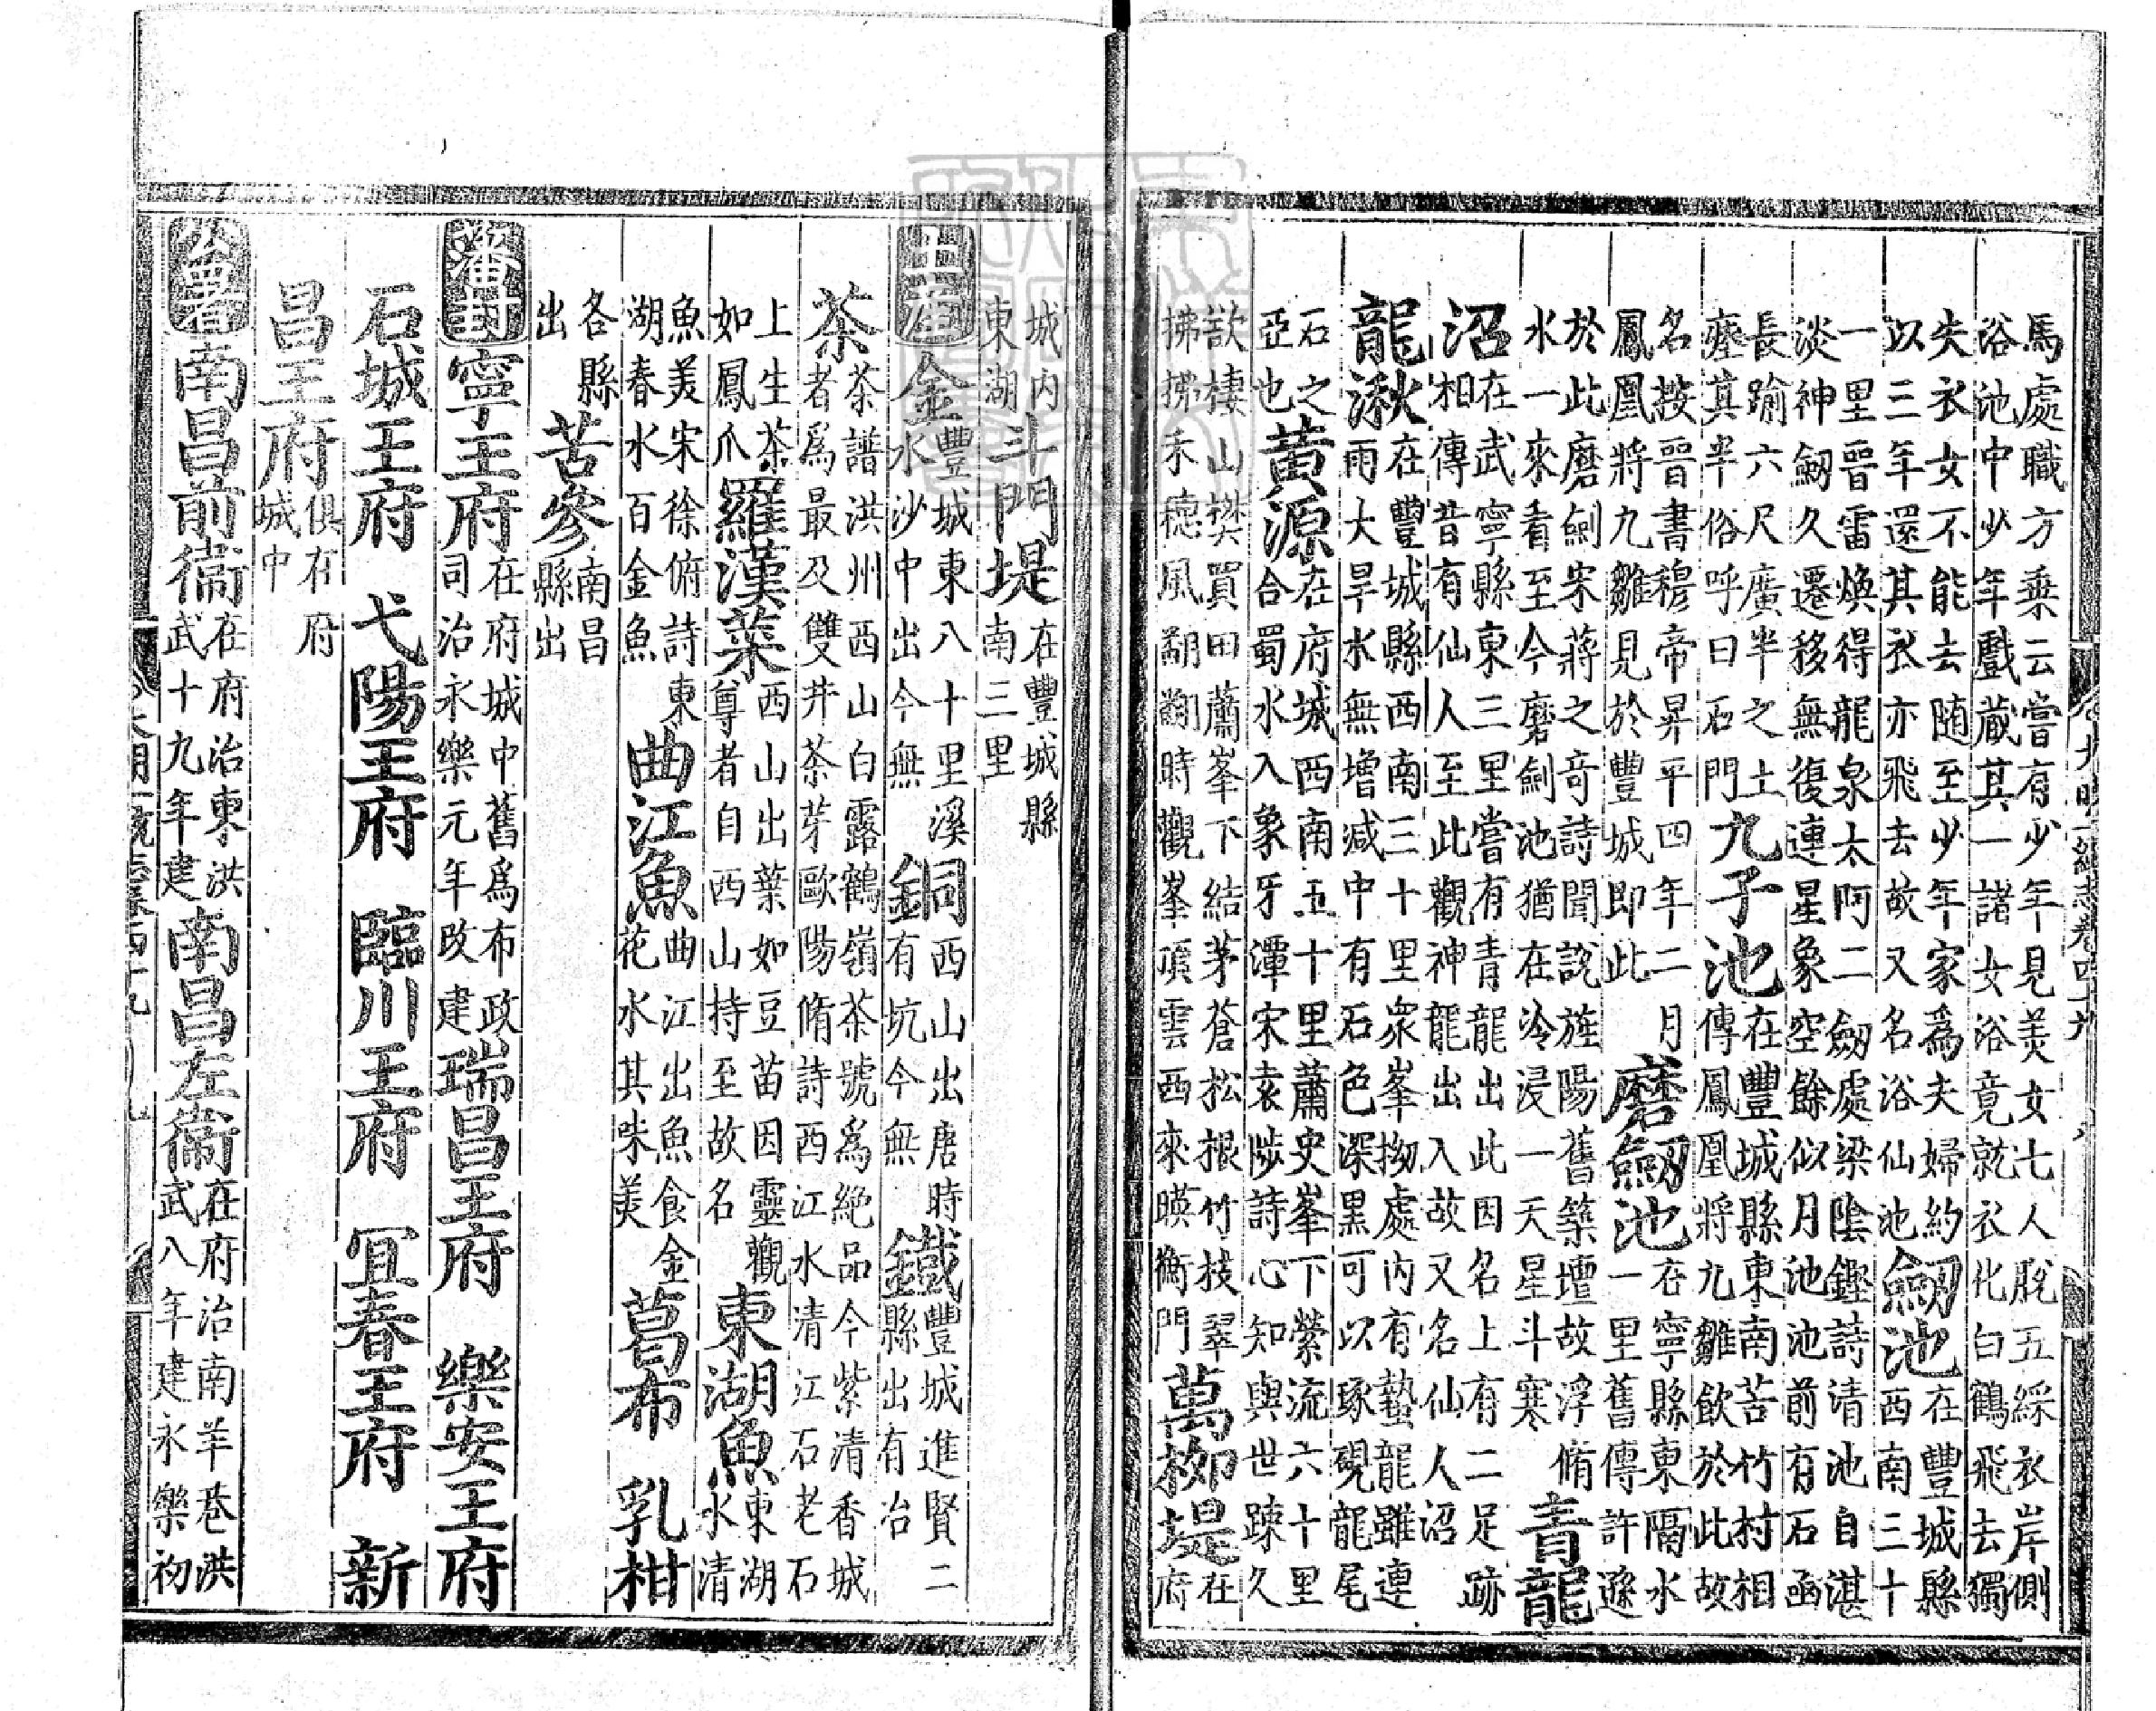 馬處職方乘云嘗有少年見美女七人脫五綵衣岸側浴池中少年戲藏其一諸女浴竟就衣化白鶴飛去獨
失衣女不能去随至少年家為夫婦約以三年還其衣亦飛去故又名浴仙池劒池在豐城縣西南三十
一里晉雷煥得龍泉太阿二劒處梁陰鏗詩清池自湛淡神劒久遷移無復連星象空餘似月池池前有石函
長踰六尺廣半之土瘞其半俗呼曰石門九子池在豐城縣東南苦竹村相傳鳳凰將九雛飲於此故
名按晉書穆帝昇平四年二月鳳凰將九雛見於豐城即此磨劒池在寧縣東隔水一里舊傳許遜
於此磨劍宋蔣之奇詩聞説旌陽舊築壇故浮脩水一來看至今磨劍池猶在冷浸一天星斗寒青龍
沼在武寧縣東三里嘗有青龍出此因名上有二足跡相傳昔有仙人至此觀神龍出入故又名仙人沼
龍湫在豐城縣西南三十里衆峯拗處内有蟄龍雖連雨大旱水無增减中有石色深黒可以琢硯龍尾
石之亞也黄源在府城西南五十里蕭史峯下縈流六十里合蜀水入象牙潭宋袁陟詩心知與世疎久
欲棲山樊買田蕭峯下結茅蒼松根竹技翠拂拂禾穗風翻翻時觀峯頂雲西來暎衡門萬栁堤在府
城内東湖斗門堤在豐城縣南三里
土產金豐城東八十里溪水沙中出今無銅西山出唐時有坑今無鐵豐城進賢二縣出有冶
茶茶譜洪州西山白露鶴嶺茶號為絶品今紫清香城者為最及雙井茶芽歐陽脩詩西江水清江石老石
上生茶如鳳爪羅漢菜西山出葉如豆苗因靈觀尊者自西山持至故名東湖魚東湖水清
魚美宋徐俯詩東湖春水百金魚曲江魚曲江出魚食金花水其味美葛布 乳柑
各縣出苦參南昌縣出
藩封寧王府在府城中舊為布政司治永樂元年改建瑞昌王府 樂安王府
石城王府 弋陽王府 臨川王府 宜春王府 新
昌王府俱在府城中
公署南昌前衞在府治東洪武十九年建南昌左衞在府治南羊巷洪武八年建永樂初